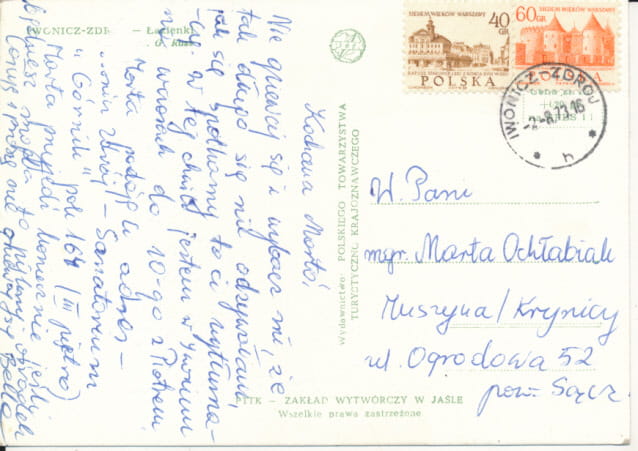 IWONICZ-ZDRÓJ — Łazienki
Kochana Marto!
Nie gniewaj się i wybacz mi, że
tak długo się nie odzywałam,
jak się spotkamy to ci wytłuma-
-czę. W tej chwili jestem w Iwoniczu
na wczasach do 10-go z Piotrem
Marta podaję ci adres –
Iwonicz Zdrój – Sanatorium
"Górnik" pok 164 (III piętro)
Marta przyjedź koniecznie jeśli
Bella
Wydawnictwo: POLSKIEGO TOWARZYSTWA
TURYSTYCZNO KRAJOZNAWCZEGO
PTTK — ZAKŁAD WYTWÓRCZY W JAŚLE
Wszelkie prawa zastrzeżone
SIEDEM WIEKÓW WARSZAWY
40 GR
POLSKA
SIEDEM WIEKÓW WARSZAWY
60 GR
IWONICZ-ZDRÓJ
-2.-8.73.16
h
W. Pani
mgr Marta Ochłabiak
Muszyna/Krynicy
ul. Ogrodowa 52
pow. Sącz.